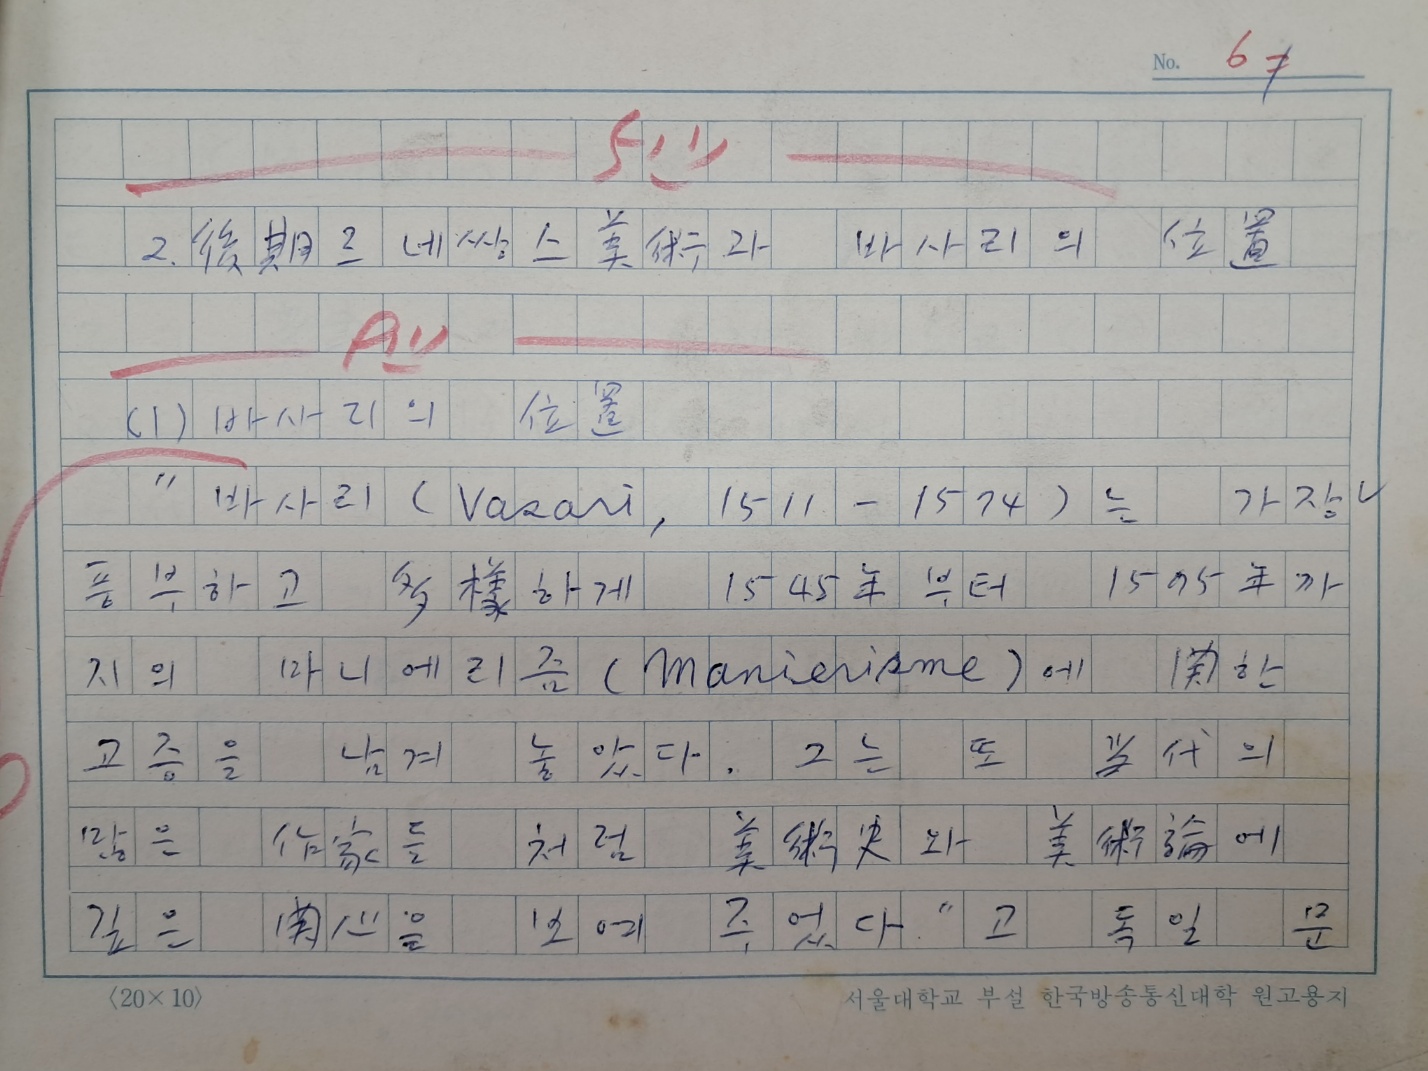 No. 67
5行
2. 後期르네쌍스美術과 바사리의 位置
A行
(1) 바사리의 位置
"바사리(Vasari, 1511-1574)는 가장
풍부하고 多樣하게 1545年부터 1595年까
지의 마니에리즘(Manierisme)에 関한
고증을 남겨 놓았다. 그는 또 当代의
많은 作家들처럼 美術史와 美術論에
깊은 関心을 보여 주었다."고 독일 문
〈20×10〉
서울대학교 부설 한국방송통신대학 원고용지